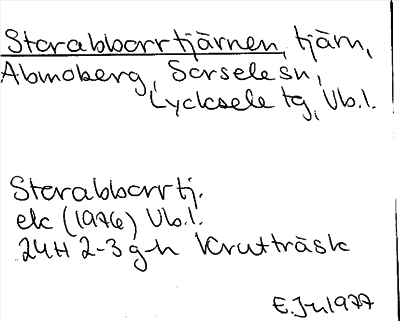 Storabborrtjärnen, tjärn,
Abmoberg, Sorsele sn,
Lycksele tg, Vb.l.
Storabborrtj.
ek (1976) Vb.l.
24H 2-3 g-h Krutträsk
E.Jn 1977